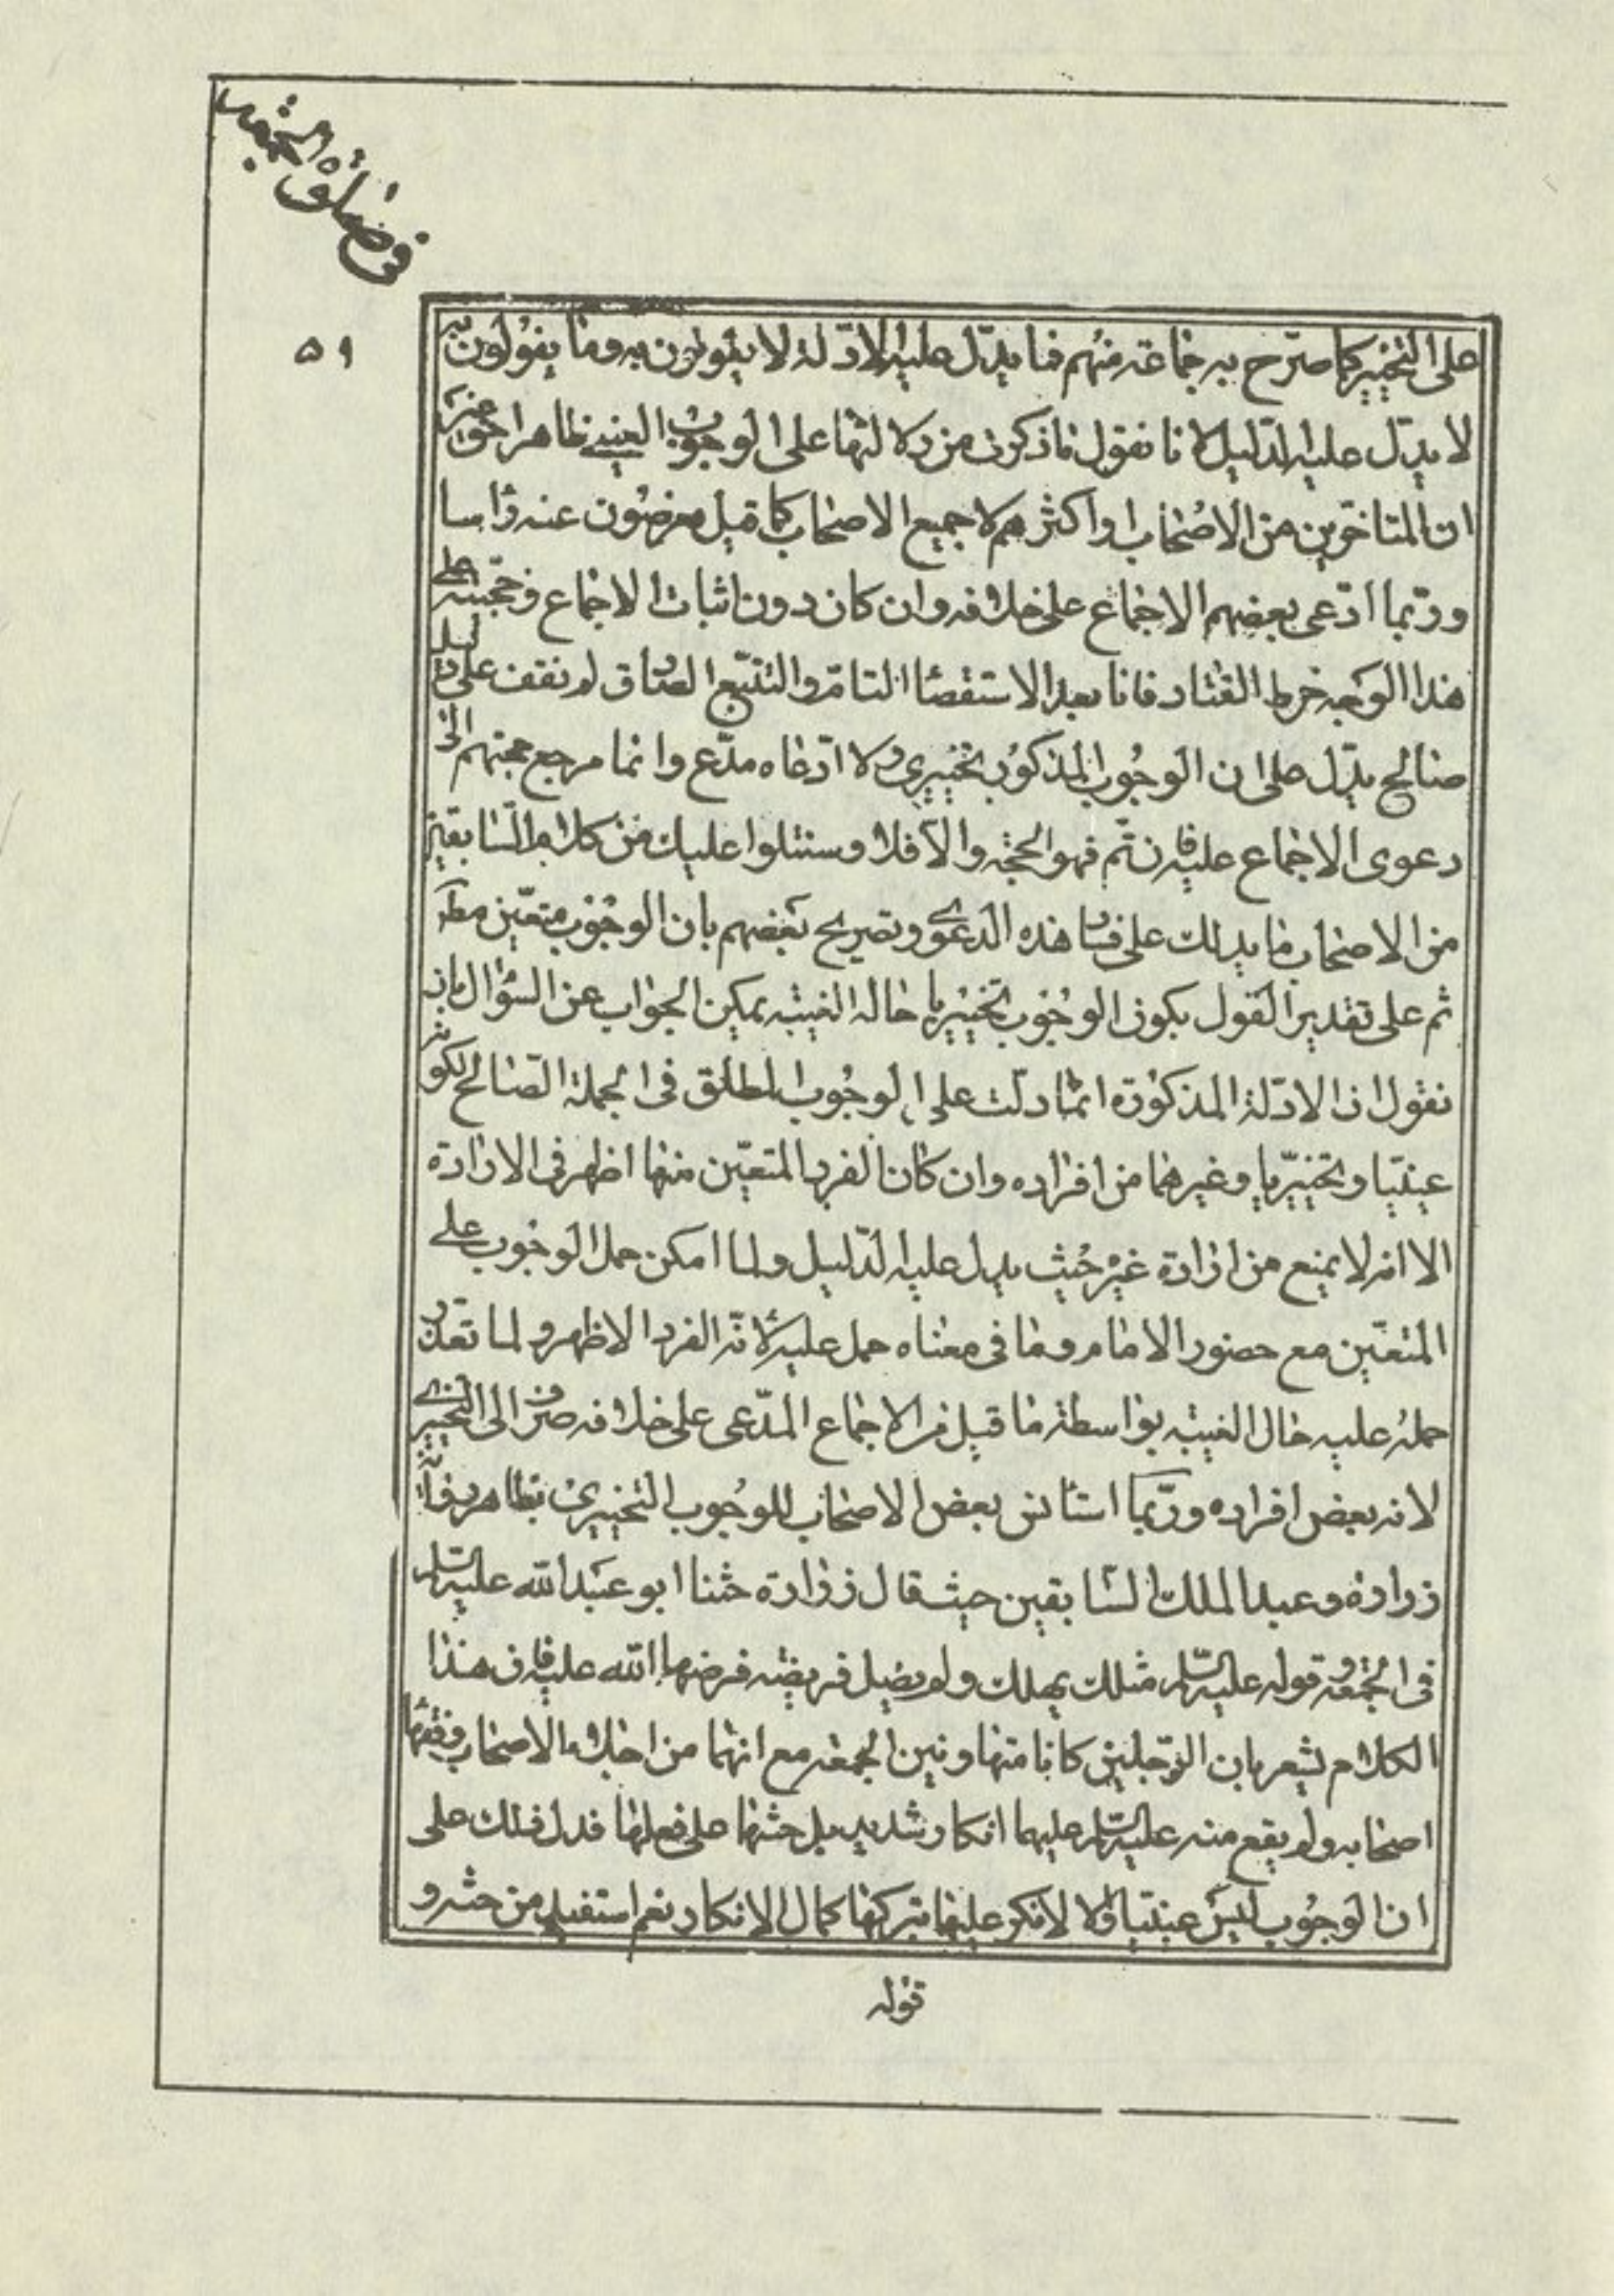 في صلوة الجمعة
٥٩
على التخيير كما صرّح به جماعة منهم فما يدلّ عليه الادلّة لا يقولون به وما يقولون به
لا يدلّ عليه الدّليل لانا نقول ما ذكرت من دلالتها على الوجوب العيني ظاهر
ان المتاخّرين من الاصحاب او اكثرهم لا جميع الاصحاب كما قيل معرضون عنه راسا
وربّما ادّعى بعضهم الاجماع على خلافه وان كان دون اثبات الاجماع وحجّيته على
هذا الوجه خرط القتاد فانا بعد الاستقصاء التامّ والتتبّع الصّادق لم نقف على دليل
صالح يدلّ على ان الوجوب المذكور تخييري ولا ادّعاه مدّع وانما مرجع حجتهم الى
دعوى الاجماع عليه فان تمّ فهو الحجّة والّا فلا وسنتلوا عليك من كلام السّابقين
من الاصحاب ما يدلك على فساد هذه الدعوى وتصريح بعضهم بان الوجوب متعيّن مطلقا
ثم على تقدير القول بكون الوجوب تخييريا حالة الغيبة يمكن الجواب عن السّؤال بان
نقول ان الادلّة المذكورة انمّا دلّت على الوجوب المطلق في الجملة الصّالح لكونه
عينيّا وتخييريّا وغيرهما من افراده وان كان الفرد المتعيّن منها اظهر في الارادة
الا انه لا يمنع من ارادة غيره حيث يدل عليه الدّليل ولما امكن حمل الوجوب على
المتعيّن مع حضور الامام وما في معناه حمل عليه لانّه الفرد الاظهر ولما تعذّر
حمله عليه حال الغيبة بواسطة ما قيل من الاجماع المدّعى على خلافه صرف الى التخييري
لانه بعض افراده وربّما استانس بعض الاصحاب للوجوب التخييري بظاهر رواية
زرارة وعبد الملك السّابقين حيث قال زرارة حثنا ابو عبد الله عليه السّلم
في الجمعة وقوله عليه السّلم مثلك يهلك ولم يصل فريضة فرضها الله عليه فان هذا
الكلام يشعر بان الرّجلين كانا متهاونين الجمعة مع انهما من اجلاء الاصحاب وفقهاء
اصحابه ولم يقع منه عليه السّلم عليهما انكار شديد بل حثهما على فعلها فدل ذلك على
ان الوجوب ليس عينيّا والا لانكر عليهما تركها كمال الانكار نعم استفيد من حثه و
قوله